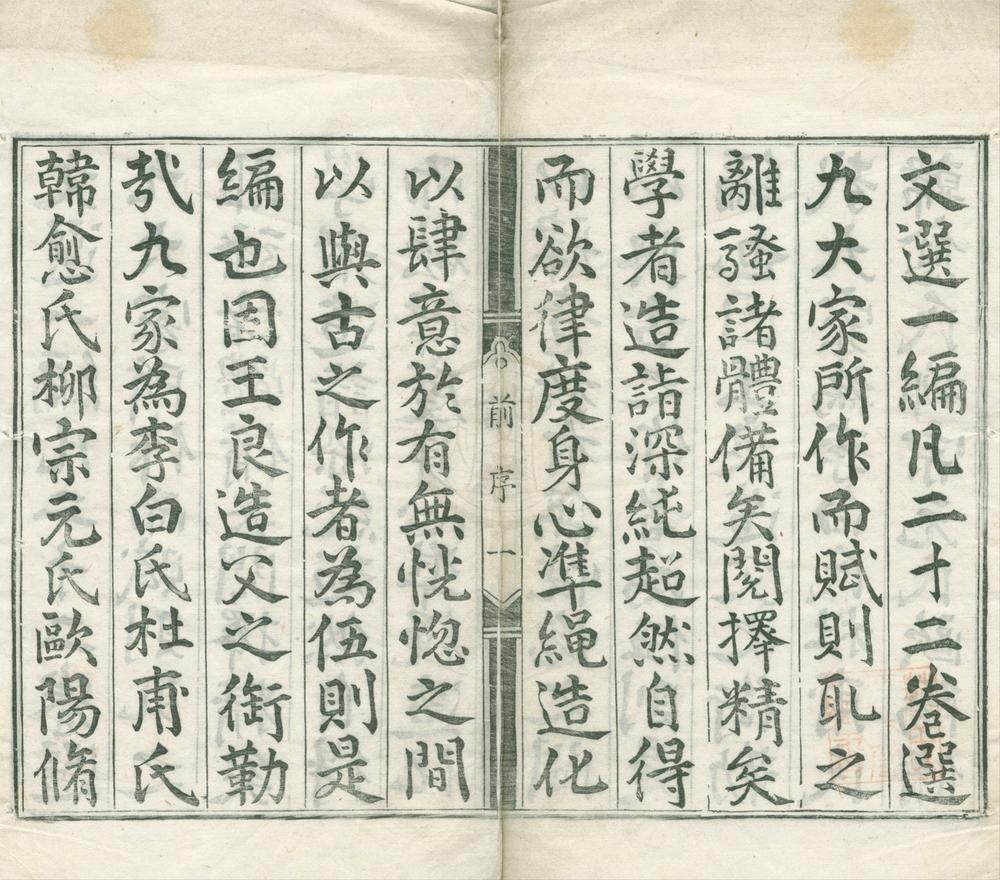 文選一編凡二十二卷選
九大家所作而賦則取之
離騷諸體備矣閱擇精矣
學者造詣深純超然自得
而欲律度身心準繩造化
前序 一
以肆意於有無恍惚之間
以與古之作者為伍則是
編也固王良造父之銜勒
㢤九家為李白氏杜甫氏
韓愈氏柳宗元氏歐陽脩